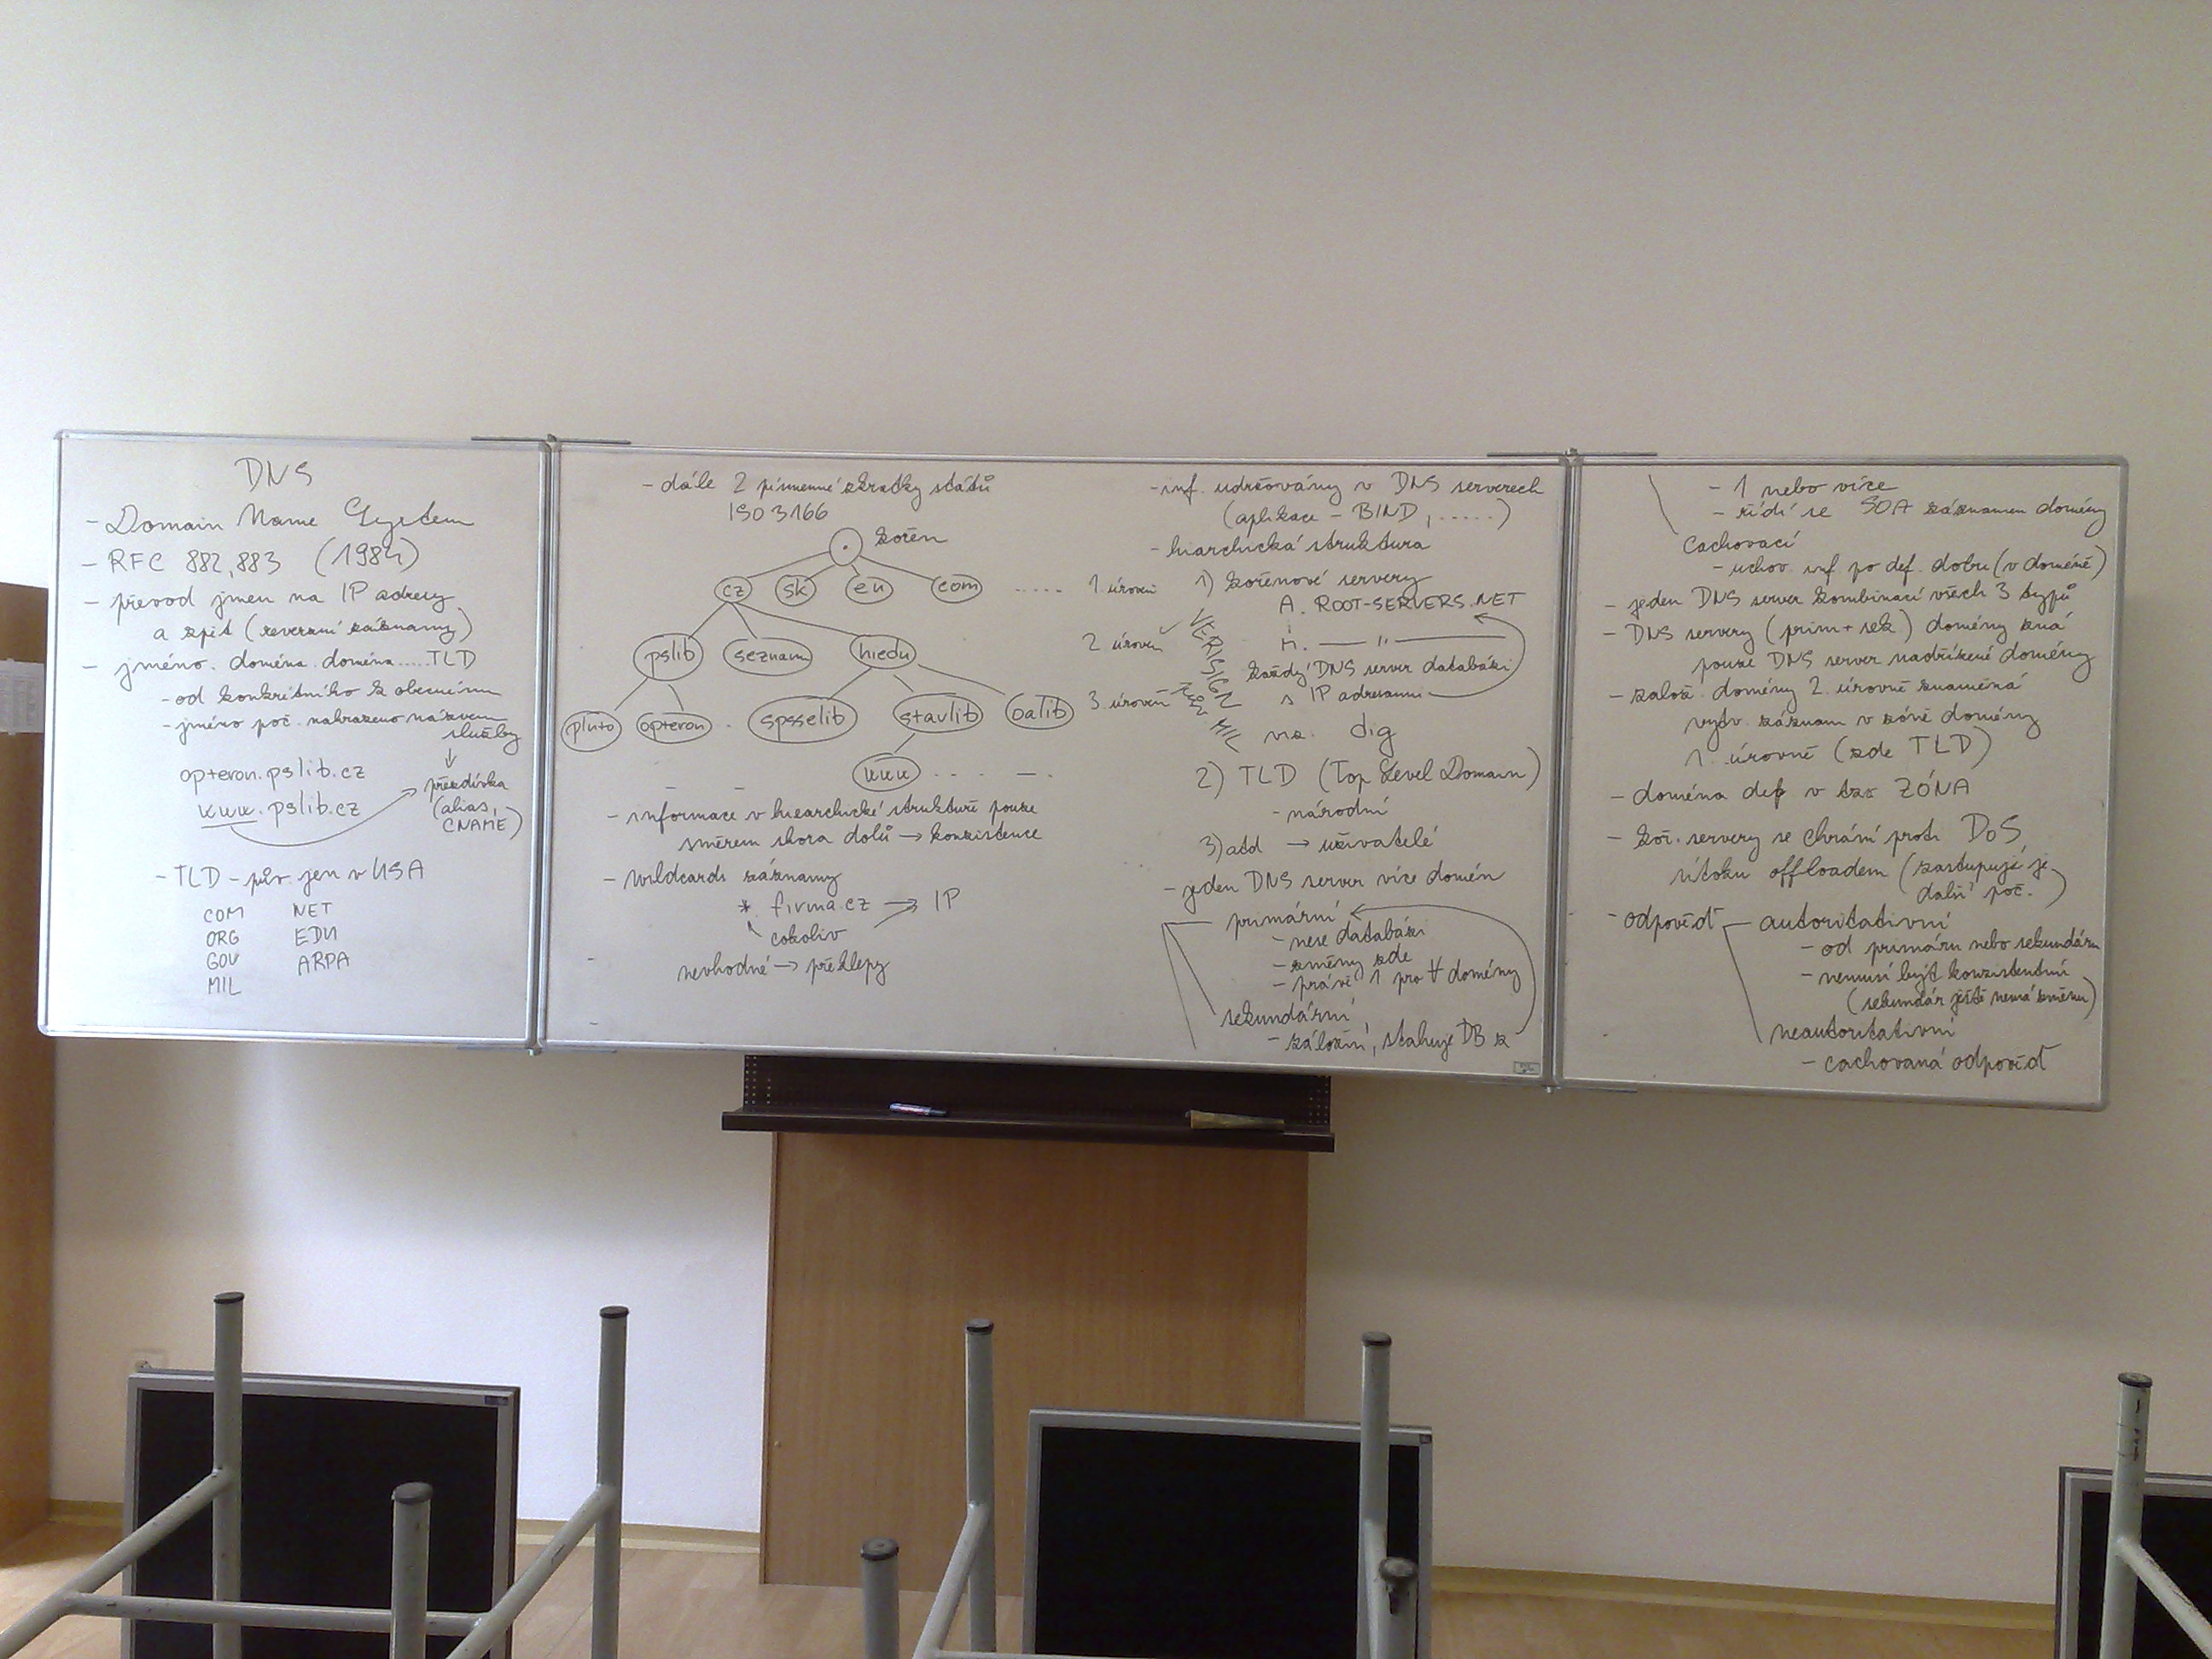 DNS
- Domain Name System
- RFC 882, 883 (1984)
- převod jmen na IP adresy
a zpět (reverzní záznamy)
- jméno. doména. doména.....TLD
- od konkrétního k obecnému
- jméno poč. nahrazeno názvem
služby
↓
opteron.pslib.cz
www.pslib.cz
přezdívka
(alias,
CNAME)
- TLD - pův. jen v USA
COM NET
ORG EDU
GOV ARPA
MIL
- dále 2 písmenné zkratky států
ISO 3166
. kořen
cz sk eu com ..... 1 úroveň
pslib seznam hiedu 2 úroveň
pluto opteron . spsselib stavlib oalib 3 úroveň
www . . . . — .
- informace v hiearchické struktuře pouze
směrem shora dolů → konzistence
- wildcards záznamy
*. firma.cz → IP
cokoliv
nevhodné → překlepy
- inf. udržovány v DNS serverech
(aplikace - BIND, ......)
- hiarchická struktura
1) kořenové servery
A. ROOT-SERVERS.NET
— " —
každý DNS server databázi
s IP adresami
VERISIGN
MIL
viz. dig
2) TLD (Top Level Domain)
- národní
3) atd → uživatelé
- jeden DNS server více domén
primární
- nese databázi
- změny zde
- právě 1 pro ∀ domény
sekundární
- záložní, stahuje DB z
- 1 nebo více
- řídí se SOA záznamem domény
Cachovací
- uchov. inf. po def. dobu (v doméně)
- jeden DNS server kombinací všech 3 typů
- DNS servery (prim + sek) domény zná
pouze DNS server nadřízené domény
- založ. domény 2. úrovně znamená
vytv. záznam v zóně domény
1. úrovně (zde TLD)
- doména def v tzv ZÓNA
- koř. servery se chrání proti DoS
útoku offloadem (zastupuje je
další poč.)
- odpověď autoritativní
- od primáru nebo sekundáru
- nemusí být konzistentní
(sekundár ještě nemá změnu)
neautoritativní
- cachovaná odpověď